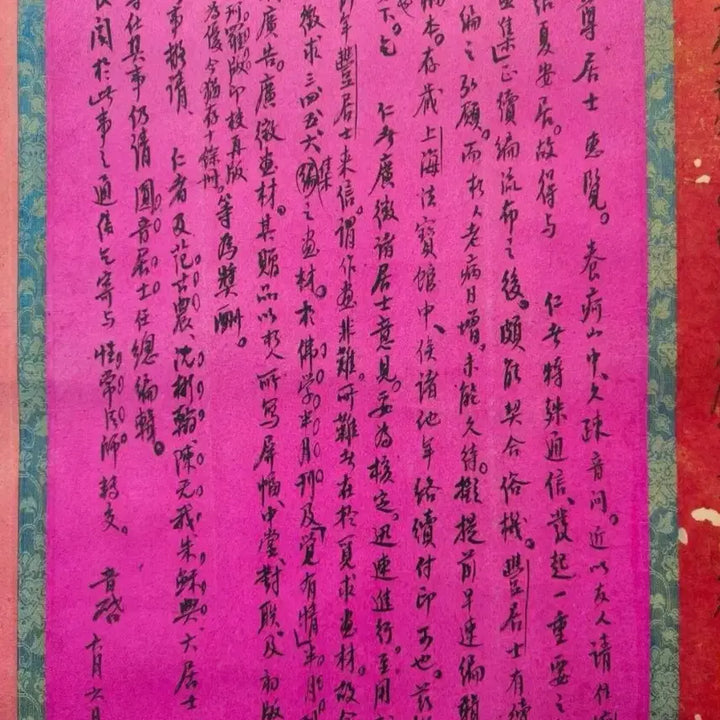 尊居士惠覽。養疴山中、久疎音問。近以友人請住
結夏安居。故得與 仁者特殊通信、發起一重要之
畫集」正續編流布之後。頗能契合俗機。豐居士有續
編之弘願。而朽人老病日增。未能久待。擬提前早速編輯
編本。存藏上海法寶館中、俟諸他年絡續付印可也。茲
下。乞 仁者廣徵諸居士意見。妥為核定。迅速進行。至用
年豐居士來信。謂作畫非難。所難者在於覓求畫材。故今
徵求三四五六集之畫材。於佛學半月刊及「覺有情」半月刊
廣告。廣徵畫材。其贈品以朽人所寫屏幅、中堂、對聯、及初版
羅版印較真版
為優今猶存十餘冊。
等為獎酬。
事擬請、 仁者及范古農、沈彬翰、陳无我、朱穌典、六居士
任其事仍請 圓音居士任總編輯。
關於此事之通信乞寄與性常法師轉交。 音啓 十月六日